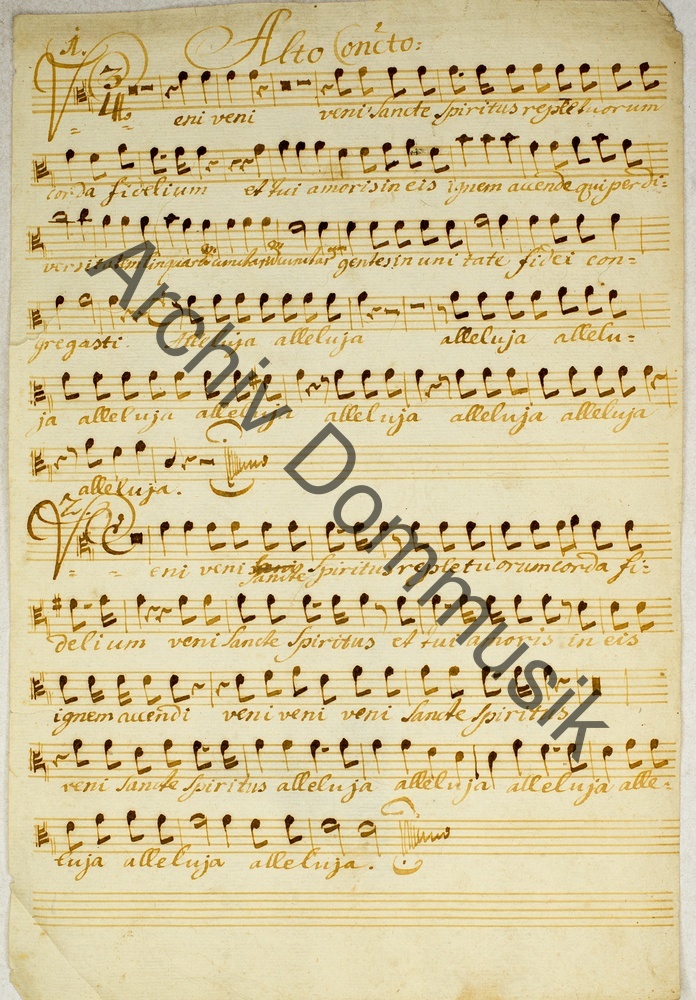 Alto Concto:
1.
3/4
Veni veni veni Sancte Spiritus reple tuorum
corda fidelium et tui amoris in eis ignem accende qui per di=
versitatem linguarum cunctarum gentes in uni tate fidei con=
gregasti. Alleluja alleluja alleluja allelu=
ja alleluja alleluja alleluja alleluja alleluja
alleluja.
2.
Veni veni Sancte Spiritus reple tuorum corda fi=
delium veni Sancte Spiritus et tui amoris in eis
ignem accendi veni veni veni Sancte Spiritus
veni Sancte Spiritus alleluja alleluja alleluja alle=
luja alleluja alleluja.
Archiv Dommusik